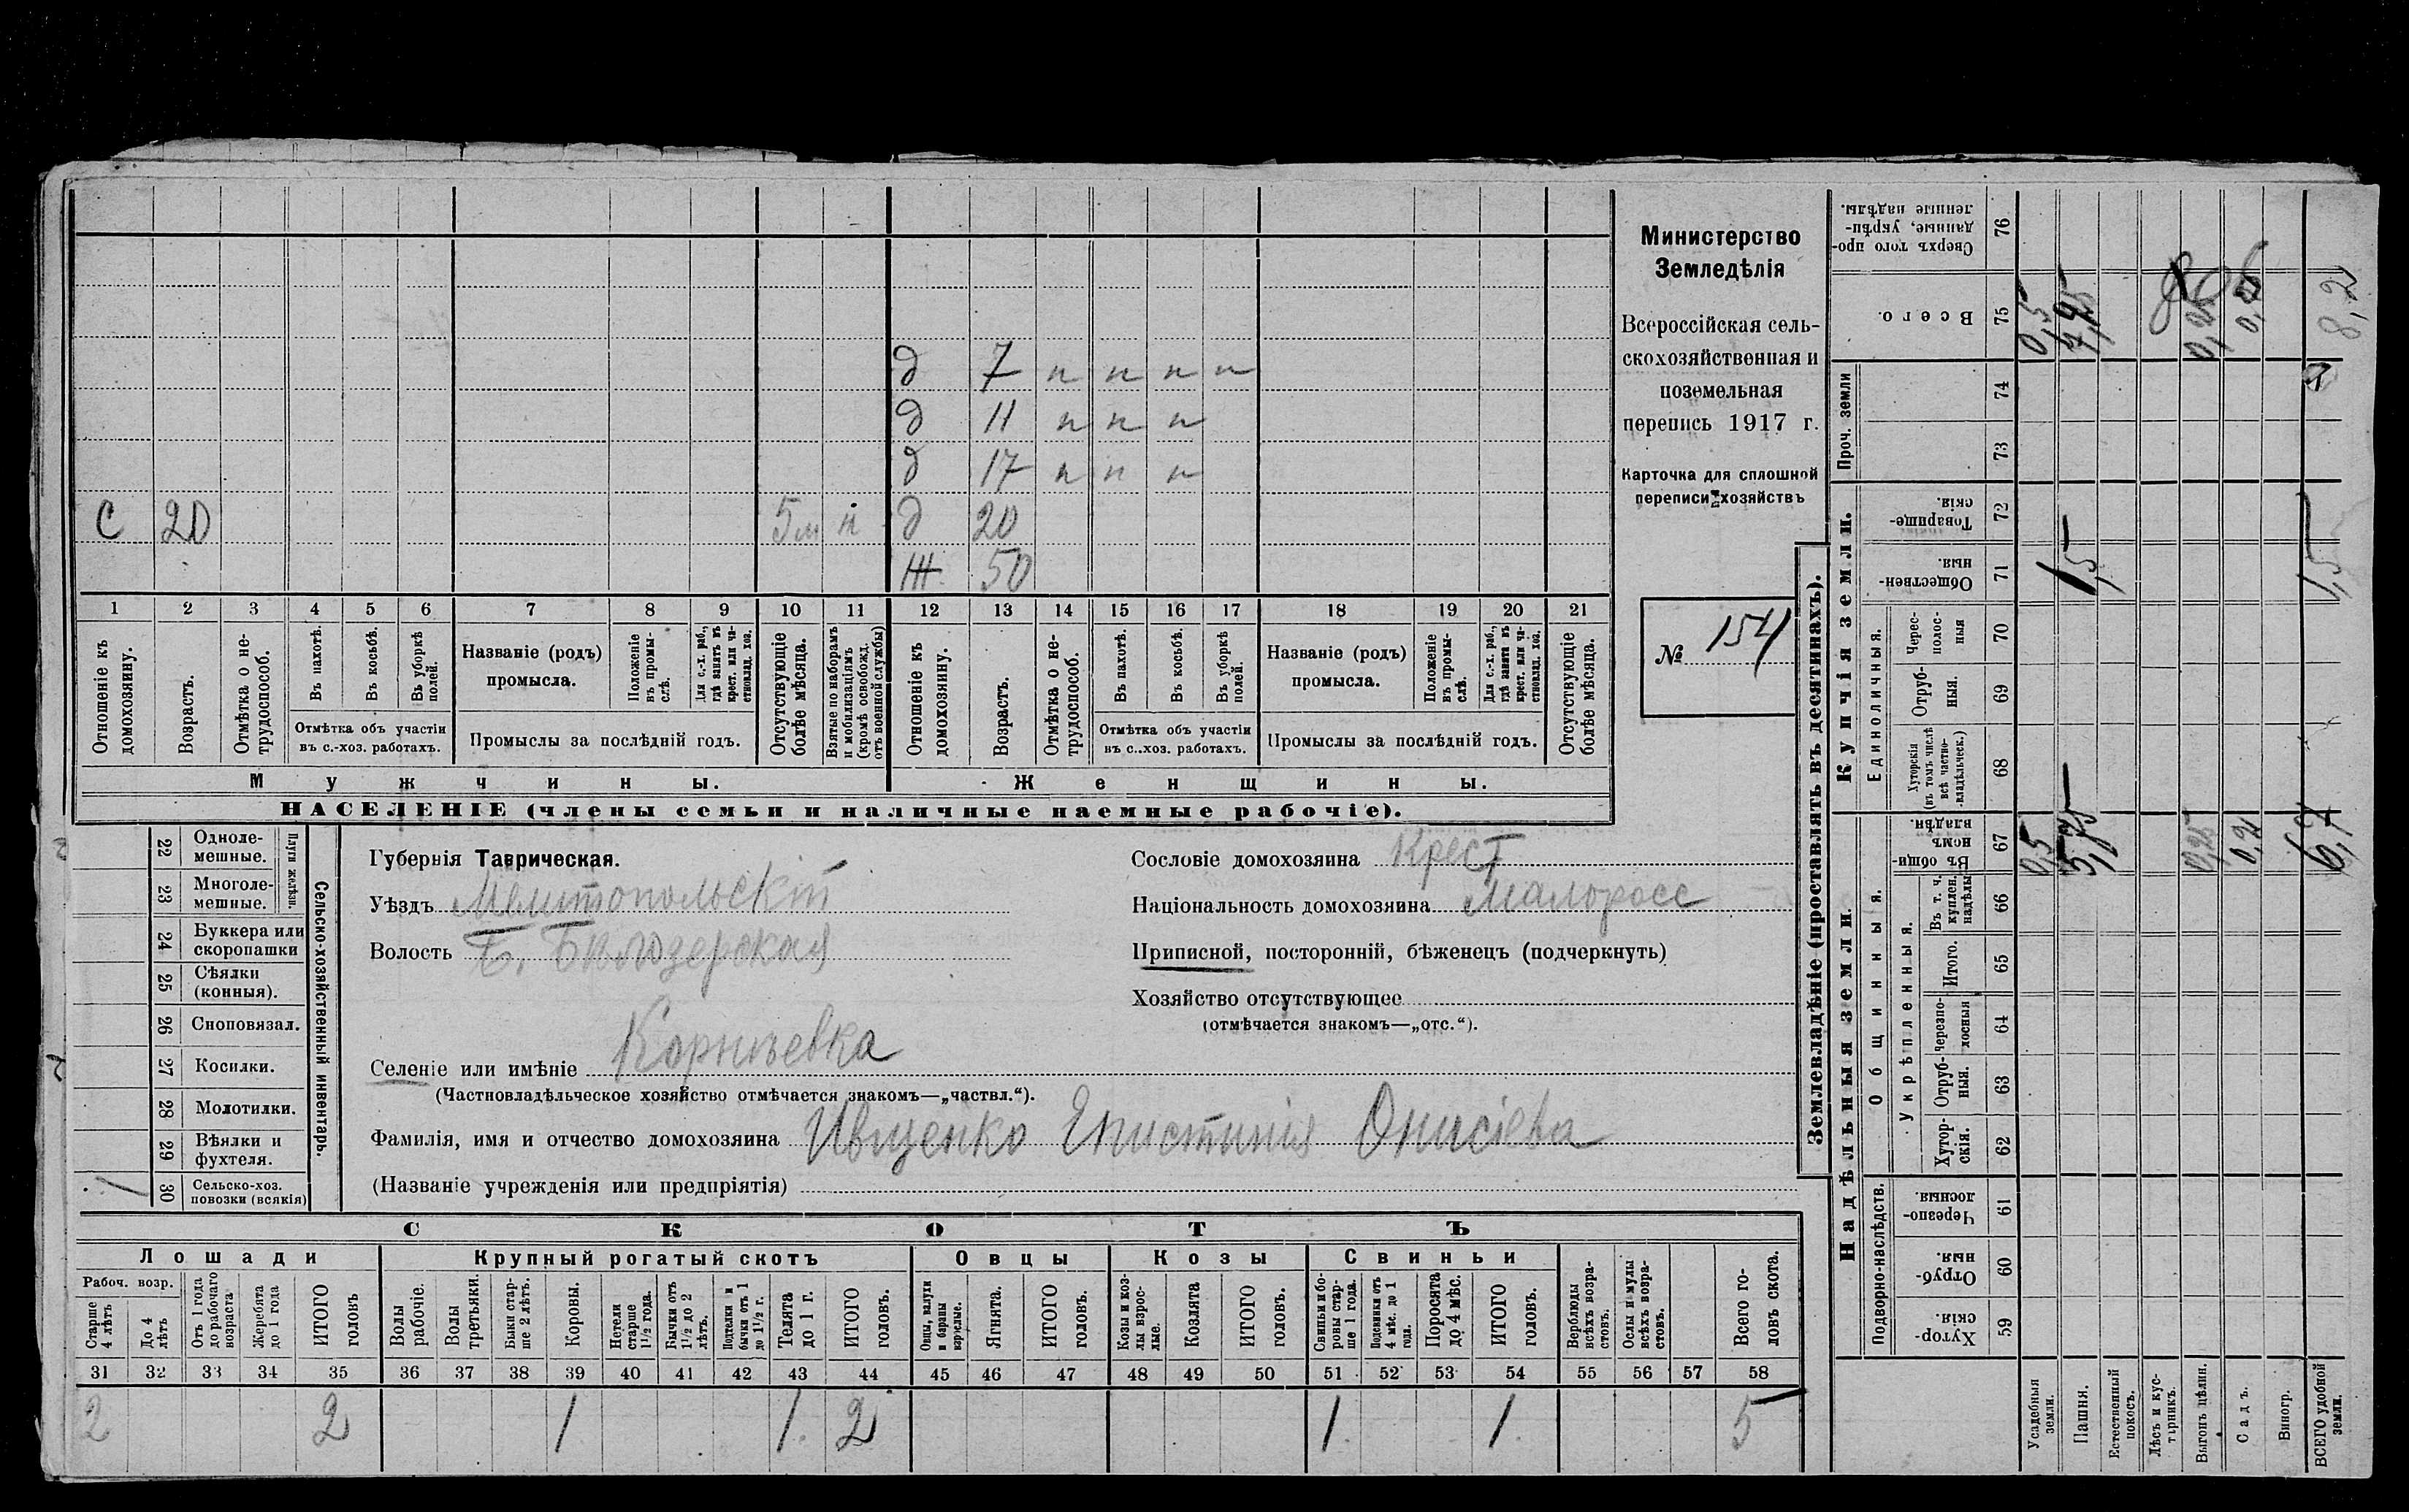 Министерство
Земледѣлія
Всероссійская сель-
скохозяйственная и
поземельная
перепись 1917 г.
Карточка для сплошной
переписи хозяйствъ
№ 154
д 7 n n n n
д 11 n n n
д 17 n n n
С 20 5м n д 20
Ж 50
1 2 3 4 5 6 7 8 9 10 11 12 13 14 15 16 17 18 19 20 21
Отношеніе къ домохозяину.
Возрастъ.
Отмѣтка о не-трудоспособ.
Въ пахотѣ.
Въ косьбѣ.
Въ уборкѣ полей.
Отмѣтка объ участіи
въ с.-хоз. работахъ.
Названіе (родъ)
промысла.
Положеніе въ промы-слѣ.
Для с.-х. раб., гдѣ занятъ въ крест. или ча-стновлад. хоз.
Промыслы за послѣдній годъ.
Отсутствующіе болѣе мѣсяца.
Взятые по наборамъ и мобилизаціямъ (кромѣ освобожд. отъ военной службы)
Отношеніе къ домохозяину.
Возрастъ.
Отмѣтка о не-трудоспособ.
Въ пахотѣ.
Въ косьбѣ.
Въ уборкѣ полей.
Отмѣтка объ участіи
въ с.-хоз. работахъ.
Названіе (родъ)
промысла.
Положеніе въ промы-слѣ.
Для с.-х. раб., гдѣ занята въ крест. или ча-стновлад. хоз.
Промыслы за послѣдній годъ.
Отсутствующіе болѣе мѣсяца.
Мужчины.
Женщины.
НАСЕЛЕНІЕ (члены семьи и наличные наемные рабочіе).
Сельско-хозяйственный инвентарь.
Плуги желѣзн.
22 Одноле-мешные.
23 Многоле-мешные.
24 Буккера или скоропашки
25 Сѣялки (конныя).
26 Сноповязал.
27 Косилки.
28 Молотилки.
29 Вѣялки и фухтеля.
30 Сельско-хоз. повозки (всякія) 1
Губернія Таврическая.
Уѣздъ Мелитопольскій
Волость Б. Бѣлозерская
Селеніе или имѣніе Корнѣевка
(Частновладѣльческое хозяйство отмѣчается знакомъ—„частвл.“).
Фамилія, имя и отчество домохозяина Ивщенко Епистинія Онисіева
(Названіе учрежденія или предпріятія)
Сословіе домохозяина Крест
Національность домохозяина Малоросс
Приписной, посторонній, бѣженецъ (подчеркнуть)
Хозяйство отсутствующее
(отмѣчается знакомъ—„отс.“).
СКОТЪ
Лошади
Крупный рогатый скотъ
Овцы
Козы
Свиньи
Рабоч. возр.
Старше 4 лѣтъ
До 4 лѣтъ
Отъ 1 года до рабочаго возраста
Жеребята до 1 года
ИТОГО головъ
Волы рабочіе.
Волы третьяки.
Быки стар-ше 2 лѣтъ.
Коровы.
Нетели старше 1½ года.
Бычки отъ 1½ до 2 лѣтъ.
Подтелки и бычки отъ 1 до 1½ г.
Телята до 1 г.
ИТОГО головъ.
Овцы, валухи и бараны взрослые.
Ягнята.
ИТОГО головъ.
Козы и коз-лы взрос-лые.
Козлята
ИТОГО головъ.
Свиньи и бо-ровы стар-ше 1 года.
Подсвинки отъ 4 мѣс. до 1 года.
Поросята до 4 мѣс.
ИТОГО головъ.
Верблюды всѣхъ возра-стовъ.
Ослы и мулы всѣхъ возра-стовъ.
Всего го-ловъ скота.
31 32 33 34 35 36 37 38 39 40 41 42 43 44 45 46 47 48 49 50 51 52 53 54 55 56 57 58
2 2 1 1 2 1 1 5
Землевладѣніе (проставлять въ десятинахъ).
Надѣльныя земли.
Купчія земли.
Проч. земли
Подворно-наслѣдств.
Общинныя.
Укрѣпленныя.
Единоличныя.
59 Хутор-скія.
60 Отруб-ныя.
61 Черезпо-лосныя.
62 Хутор-скія.
63 Отруб-ныя.
64 Черезпо-лосныя
65 Итого.
66 Въ т. ч. куплен. надѣлы
67 Въ общин-номъ владѣн.
68 Хуторскія (въ томъ числѣ всѣ частно-владѣльческ.)
69 Отруб-ныя.
70 Черес-полос-ныя
71 Обществен-ныя.
72 Товарище-скія.
73
74
75 Всего.
76 Сверхъ того про-данные, укрѣп-ленные надѣлы.
Усадебныя земли. 0,5 0,5
Пашня. 5,75 1,5
Естественный покосъ.
Лѣсъ и кус-тарникъ.
Выгонъ цѣлин. 0,25 0,25
Садъ. 0,2
Виногр.
ВСЕГО удобной земли. 6,7 1,5 8,2